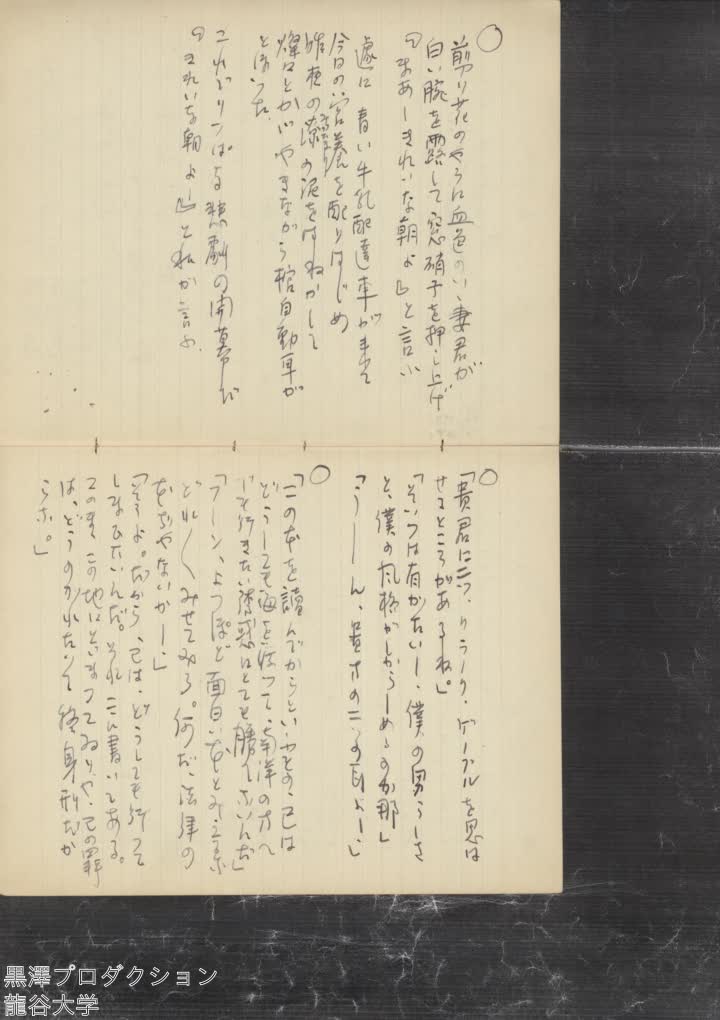 ○
剪り花のやうに血色のいゝ妻君が
白い腕を露して窓硝子を押し上げ
『まあーきれいな朝よ』と言ふ
遽に青い牛乳配達車が来て
今日の栄養を配りはじめ
昨夜の の泥をはねかして
燦々とかゞやきながら棺自動車が
とほつた
これがりつぱな悲劇の開幕だ
『きれいな朝よ』と私が言ふ
○
「貴君に二つ、クラーク・ゲーブルを思は
せるところがあるね。」
「そいつは有がたいー、僕の男らしさ
と、僕の風格がしからしめるのか那」
「うーーん、貴方の二つの耳よー」
○
「この本を読んでからといふもの、己は
どうしても海を渡つて、南洋の方へ
でも行きたい誘惑にとても勝てないんだ」
「フーン、よつぽど面白い本とみえるな
どれ〱みせてみろ。何だ、法律の
本ぢやないかー」
「そうよ。だから、己は、どうしても行つて
しまひたいんだ。それ、こゝに書いてある。
このまゝこの地にとどまつてゐりや、己の罪
は、どうのがれたいて終身刑だか
らナ。」
黒澤プロダクション
龍谷大学